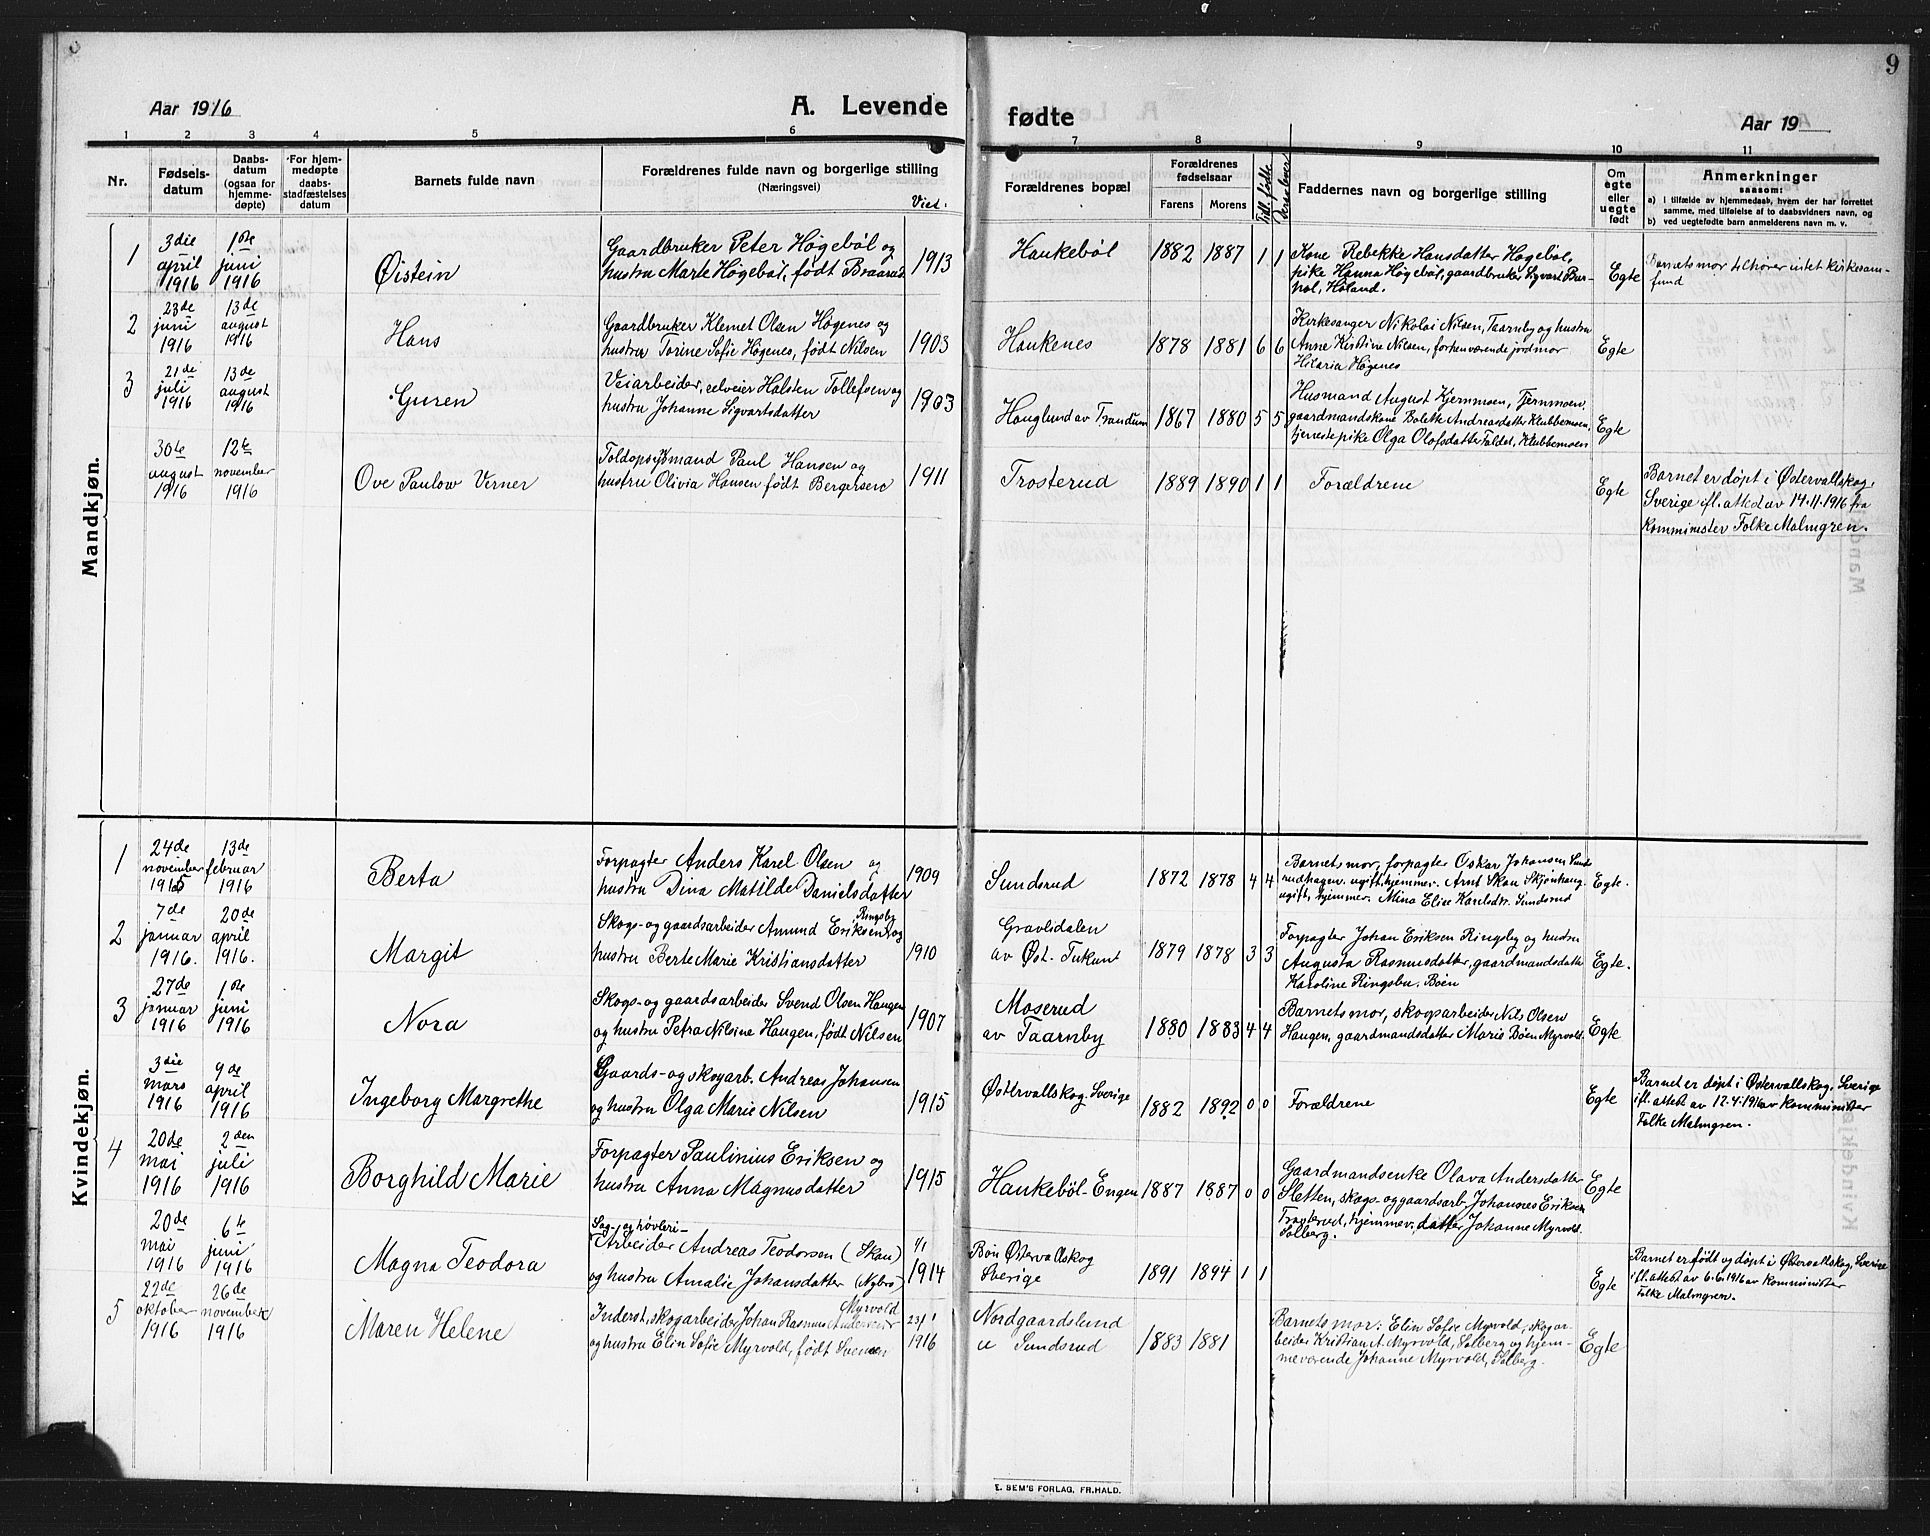 9
Aar 1916
A. Levende
fødte
Aar 19
1 2 3 4 5 6 7 8 9 10 11
Nr.
Fødsels-
datum
Daabs-
datum
(ogsaa for
hjemme-
døpte)
For hjem-
medøpte
daabs-
stadfæstelses
datum
Barnets fulde navn
Forældrenes fulde navn og borgerlige stilling
(Næringsvei)
Viet.
Forældrenes bopæl
Forældrenes
fødselsaar
Farens Morens
Faddernes navn og borgerlige stilling
Om
egte
eller
uegte
født
Anmerkninger
saasom:
a) i tilfælde av hjemmedaab, hvem der har forrettet
samme, med tilføielse af to daabsvidners navn, og
b) ved uegtefødte barn anmelderens navn m. v.
Mandkjøn.
1
3die
april
1916
1ste
juni
1916
Øistein
Gaardbruker Peter Høgebøl og
hustru Marte Høgebøl, født
1913
Haukebøl
1882 1887 1 1
Kone Rebekke Hansdatter Høgebøl,
pike Hanna Høgebøl, gaardbruker Sigvart
Høland.
Egte
Barnets mor tilhører intet kirkesam-
fund
2
23de
juni
1916
13de
august
1916
Hans
Gaardbruker Klemet Olsen Høgenes og
hustru Torine Sofie Høgenes, født Nilsen
1903
Haukenes
1878 1881 6 6
Kirkesanger Nikolai Nilsen, Taarnby og hustru
Anne Kirstine Nilsen, forhenværende jordmor
Hilaria Høgenes
Egte
3
21de
juli
1916
13de
august
1916
Guren
Veiarbeider, selveier Halsten Tollefsen og
hustru Johanne Sigvartsdatter
1903
Hauglund av Trandum
1867 1880 5 5
Husmand August Kjernmoen, Tjernmoen,
gaardmandskone Bolette Andreasdatter Klubbemoen,
tjenestepike Olga Olofsdatter Faldet, Klubbemoen
Egte
30te
august
1916
12te
november
1916
Ove Paulow Verner
Toldopsynsmand Paul Hansen og
hustru Olivia Hansen født Bergersen
1911
Trosterud
1889 1890 1 1
Forældrene
Egte
Barnet er døpt i Østervallskog,
Sverige ifl. attest av 14.11.1916 fra
Komminister Folke Malmgren.
Kvindekjøn.
1
24de
november
1915
13de
februar
1916
Berta
Forpagter Anders Karel Olsen og
hustru Dina Matilde Danielsdatter
1909
Sundsrud
1872 1878 4 4
Barnets mor, forpagter Oskar Johansen Sunds
rudhagen, ugift, hjemmev. Arnt Skau Skjønhaug
ugift, hjemmev. Mina Elise Karlsdtr. Sundsrud
Egte.
2
7de
januar
1916.
20de
april
1916.
Margit
Skogs- og gaardsarbeider Amund Eriksen Ringsby og
hustru Berte Marie Kristiansdatter
1910
Gravlidalen
av Øst. Tukunt
1879 1878 3 3
Forpagter Johan Eriksen Ringsby og hustru
Augusta Rasmusdatter, gaardmandsdatter
Karoline Ringsby, Bøen
Egte.
3
27de
januar
1916
1ste
juni
1916
Nora
Skogs- og gaardsarbeider Svend Olsen Haugen
og hustru Petra Nilsine Haugen, født Nilsen
1907
Moserud
av Taarnby
1880 1883 4 4
Barnets mor, skogsarbeider Nils Olsen
Haugen, gaardmandsdatter Marie Bøen Myrvold.
Egte
3die
mars
1916
9de
april
1916
Ingeborg Margrethe
Gaards- og skogarb. Andreas Johansen
og hustru Olga Marie Nilsen
1915
Østervallskog, Sverige
1882 1892 0 0
Forældrene
Egte
Barnet er døpt i Østervallskog, Sverige
ifl. attest av 12.4.1916 av Komminister
Folke Malmgren.
4
20de
mai
1916
2den
juli
1916
Borghild Marie
Forpagter Paulinius Eriksen og
hustru Anna Magnusdatter
1915
Haukebøl-Engen
1887 1887 0 0
Gaardmandsenke Olava Andersdatter
Sletten, skogs- og gaardsarb. Johannes Eriksen
Trosterud, hjemmev. datter Johanne Myrvold
Solberg.
Egte
20de
mai
1916
6te
juni
1916
Magna Teodora
Sag- og høvleri-
Arbeider Andreas Teodorsen (Skau)
og hustru Amalie Johansdatter (Nybro)
1/1
1914
Bøn Østervallskog
Sverige
1891 1894 1 1
Egte
Barnet er født og døpt i Østervallskog, Sverige
ifl. attest av 6.6.1916 av Komminister
Folke Malmgren.
5
22de
oktober
1916
26de
november
1916
Maren Helene
Inderst, skogarbeider Johan Rasmus Andersen Myrvold
og hustru Elin Sofie Myrvold, født Svensen
1916
Nordgaardslund
u Sundsrud
1883 1881
Barnets mor: Elin Sofie Myrvold, skogar-
beider Kristian A. Myrvold, Solberg og hjem-
meværende Johanne Myrvold, Solberg.
Egte
E. SEM'S FORLAG, FR.HALD.